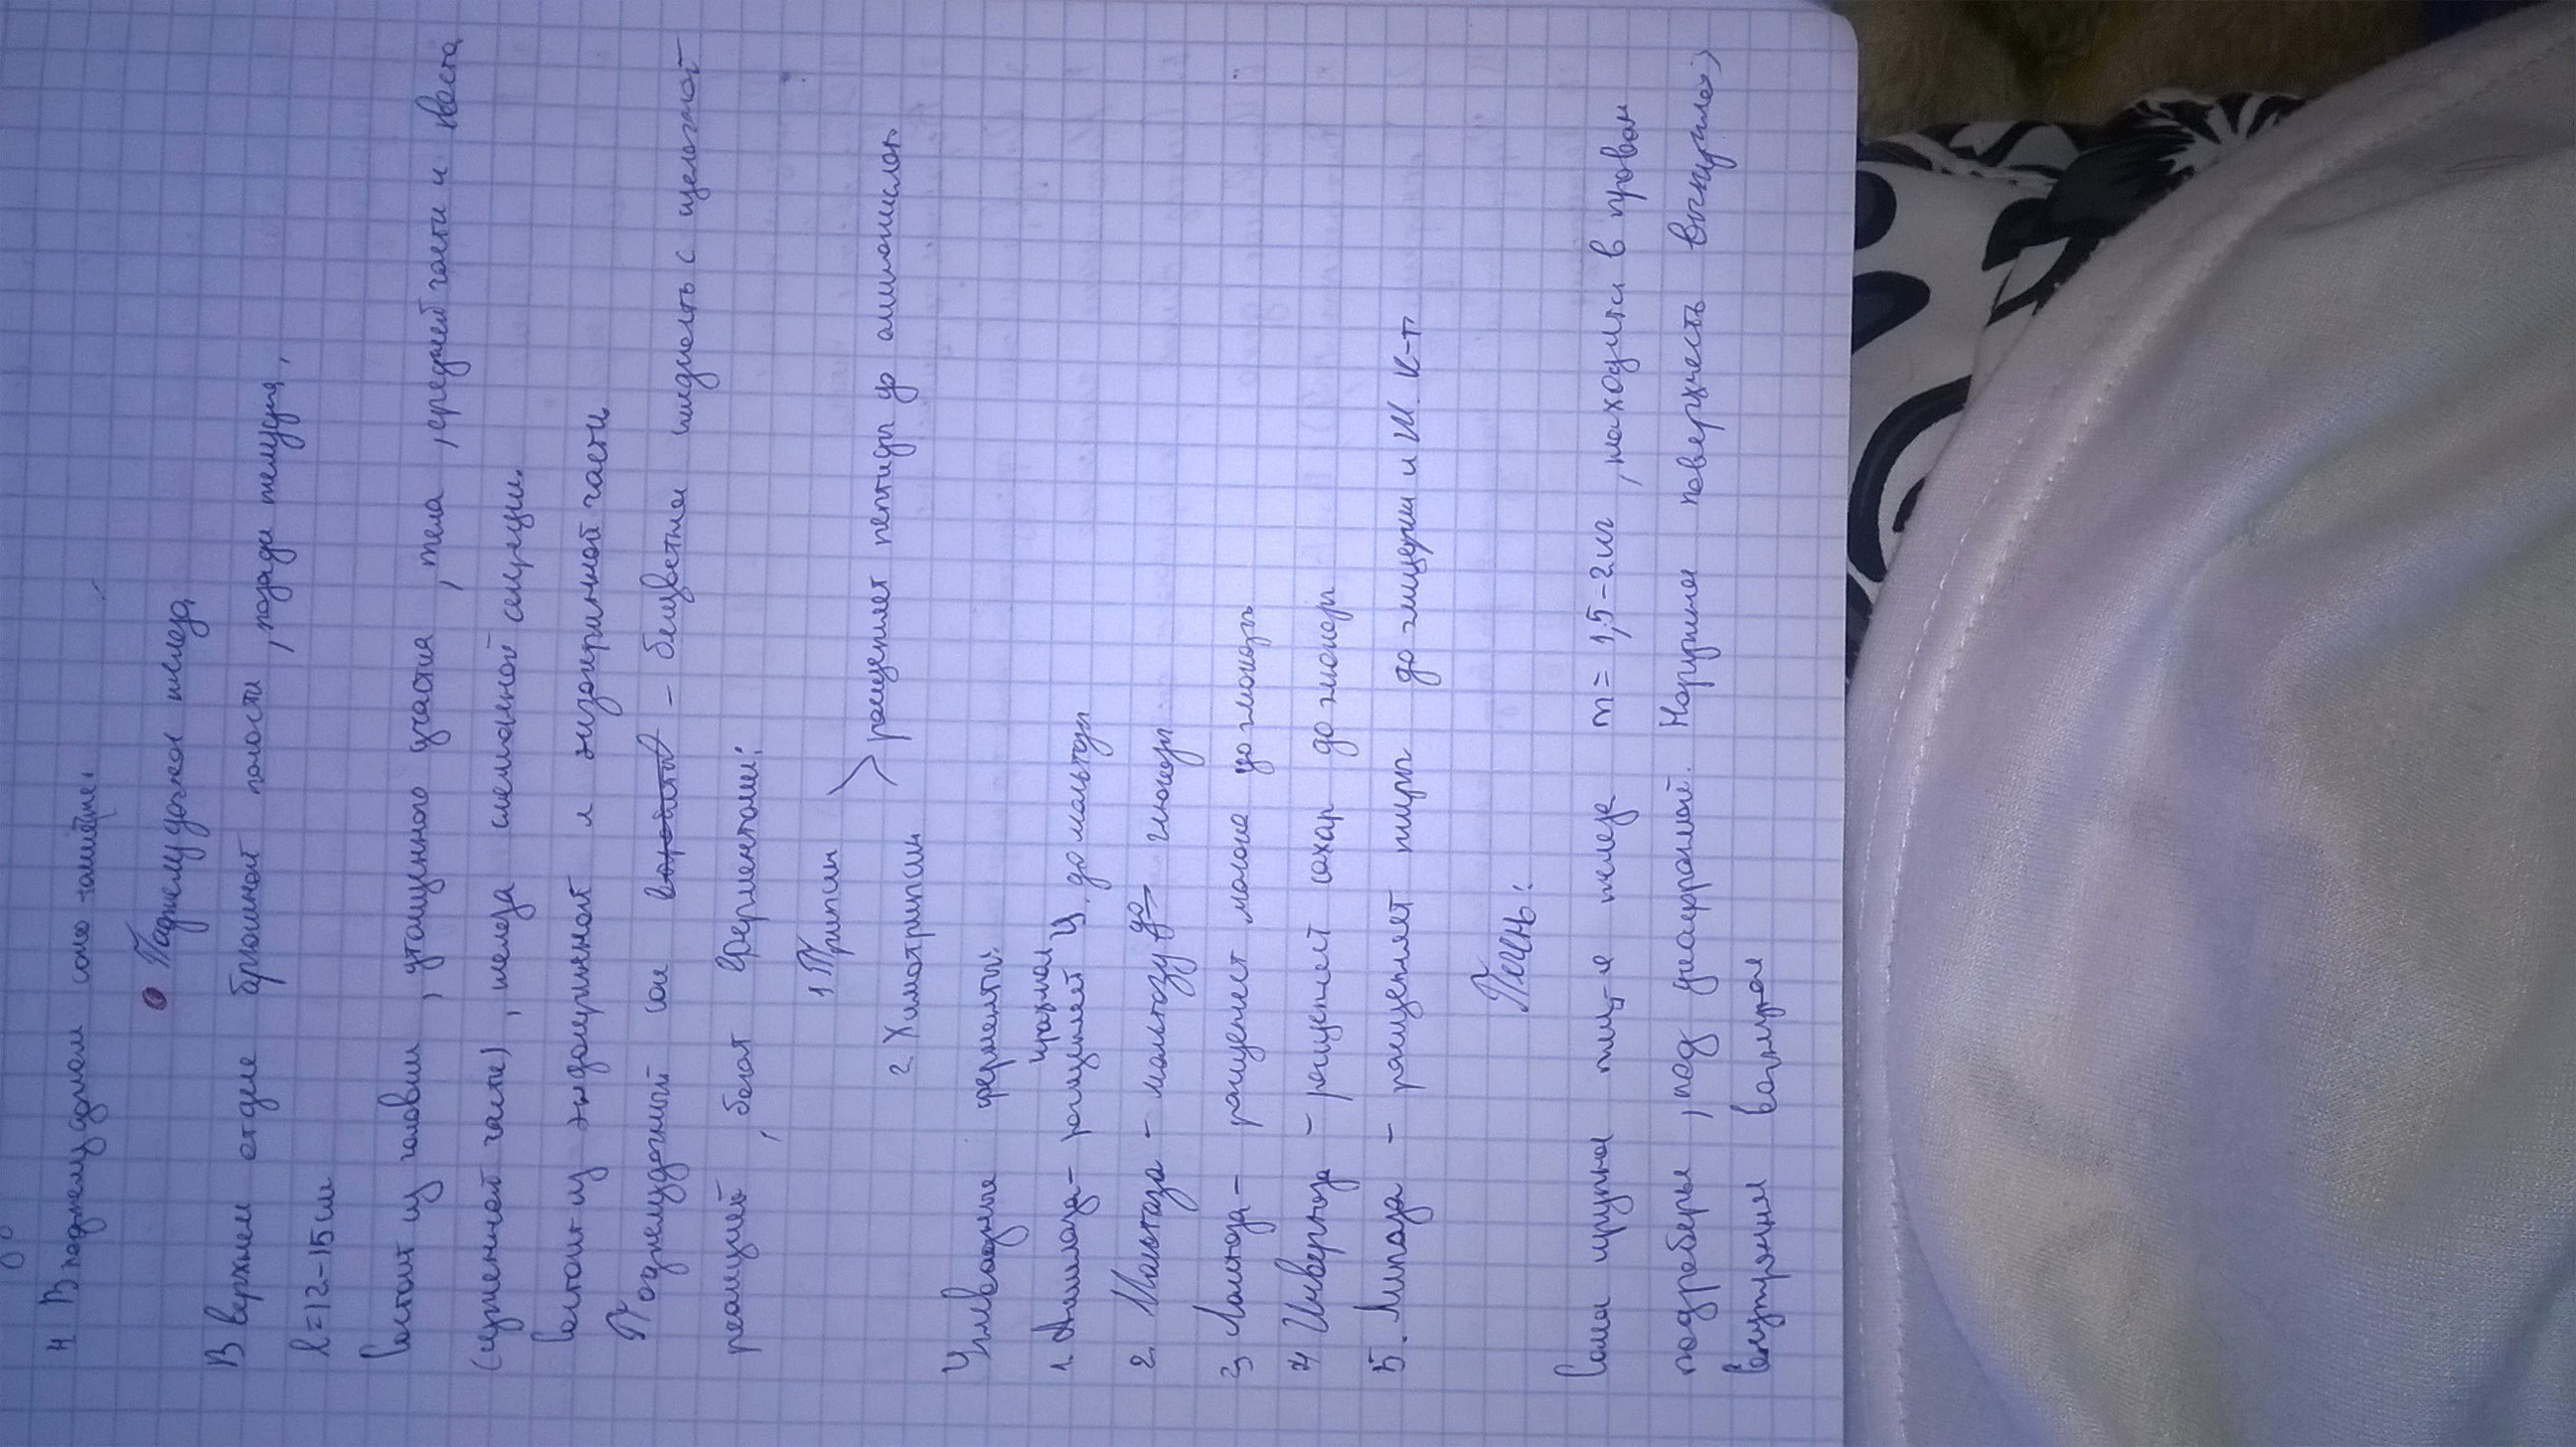 4 В поджелудочном соке
• Паджелудочная железа
В верхнем отделе брюшной полости, позади желудка,
l = 12-15 см
Состоит из головки, утолщенного участка, тела, средней части и хвоста
(суженной части), железа смешанной секреции.
Состоит из эндокринной и экзокринной части
Поджелудочный сок - бесцветная жидкость с щелочной
реакцией, богат ферментами:
1. Трипсин
2. Химотрипсин > расщепляет пептиды до аминокислот
Углеводные ферменты:
1. Амилаза - расщепляет крахмал до мальтозы
2. Мальтаза - мальтозу до глюкозы
3 Лактаза - расщепляет молоко до глюкозы
4 Инвертаза - расщепляет сахар до глюкозы
5. Липаза - расщепляет жиры до глицерин и Ж. К-т
Печень:
Самая крупная пищ-я железа m = 1,5-2 кг, находится в правом
подреберье, под диафрагмой. Наружная поверхность выпуклая,
внутренняя вогнутая